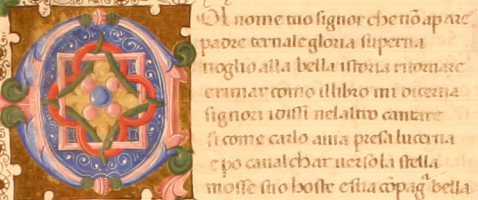 Col nome tuo signor che nõ apare
padre ternale gloria superna
uoglio alla bella istoria ritornare
e rimar como illibro mi diserna
signori i dissi nelaltro cantare
si come carlo auia presa lucerna
e po caualchar uerso la stella
mosse suo hoste esua cõpagª bella